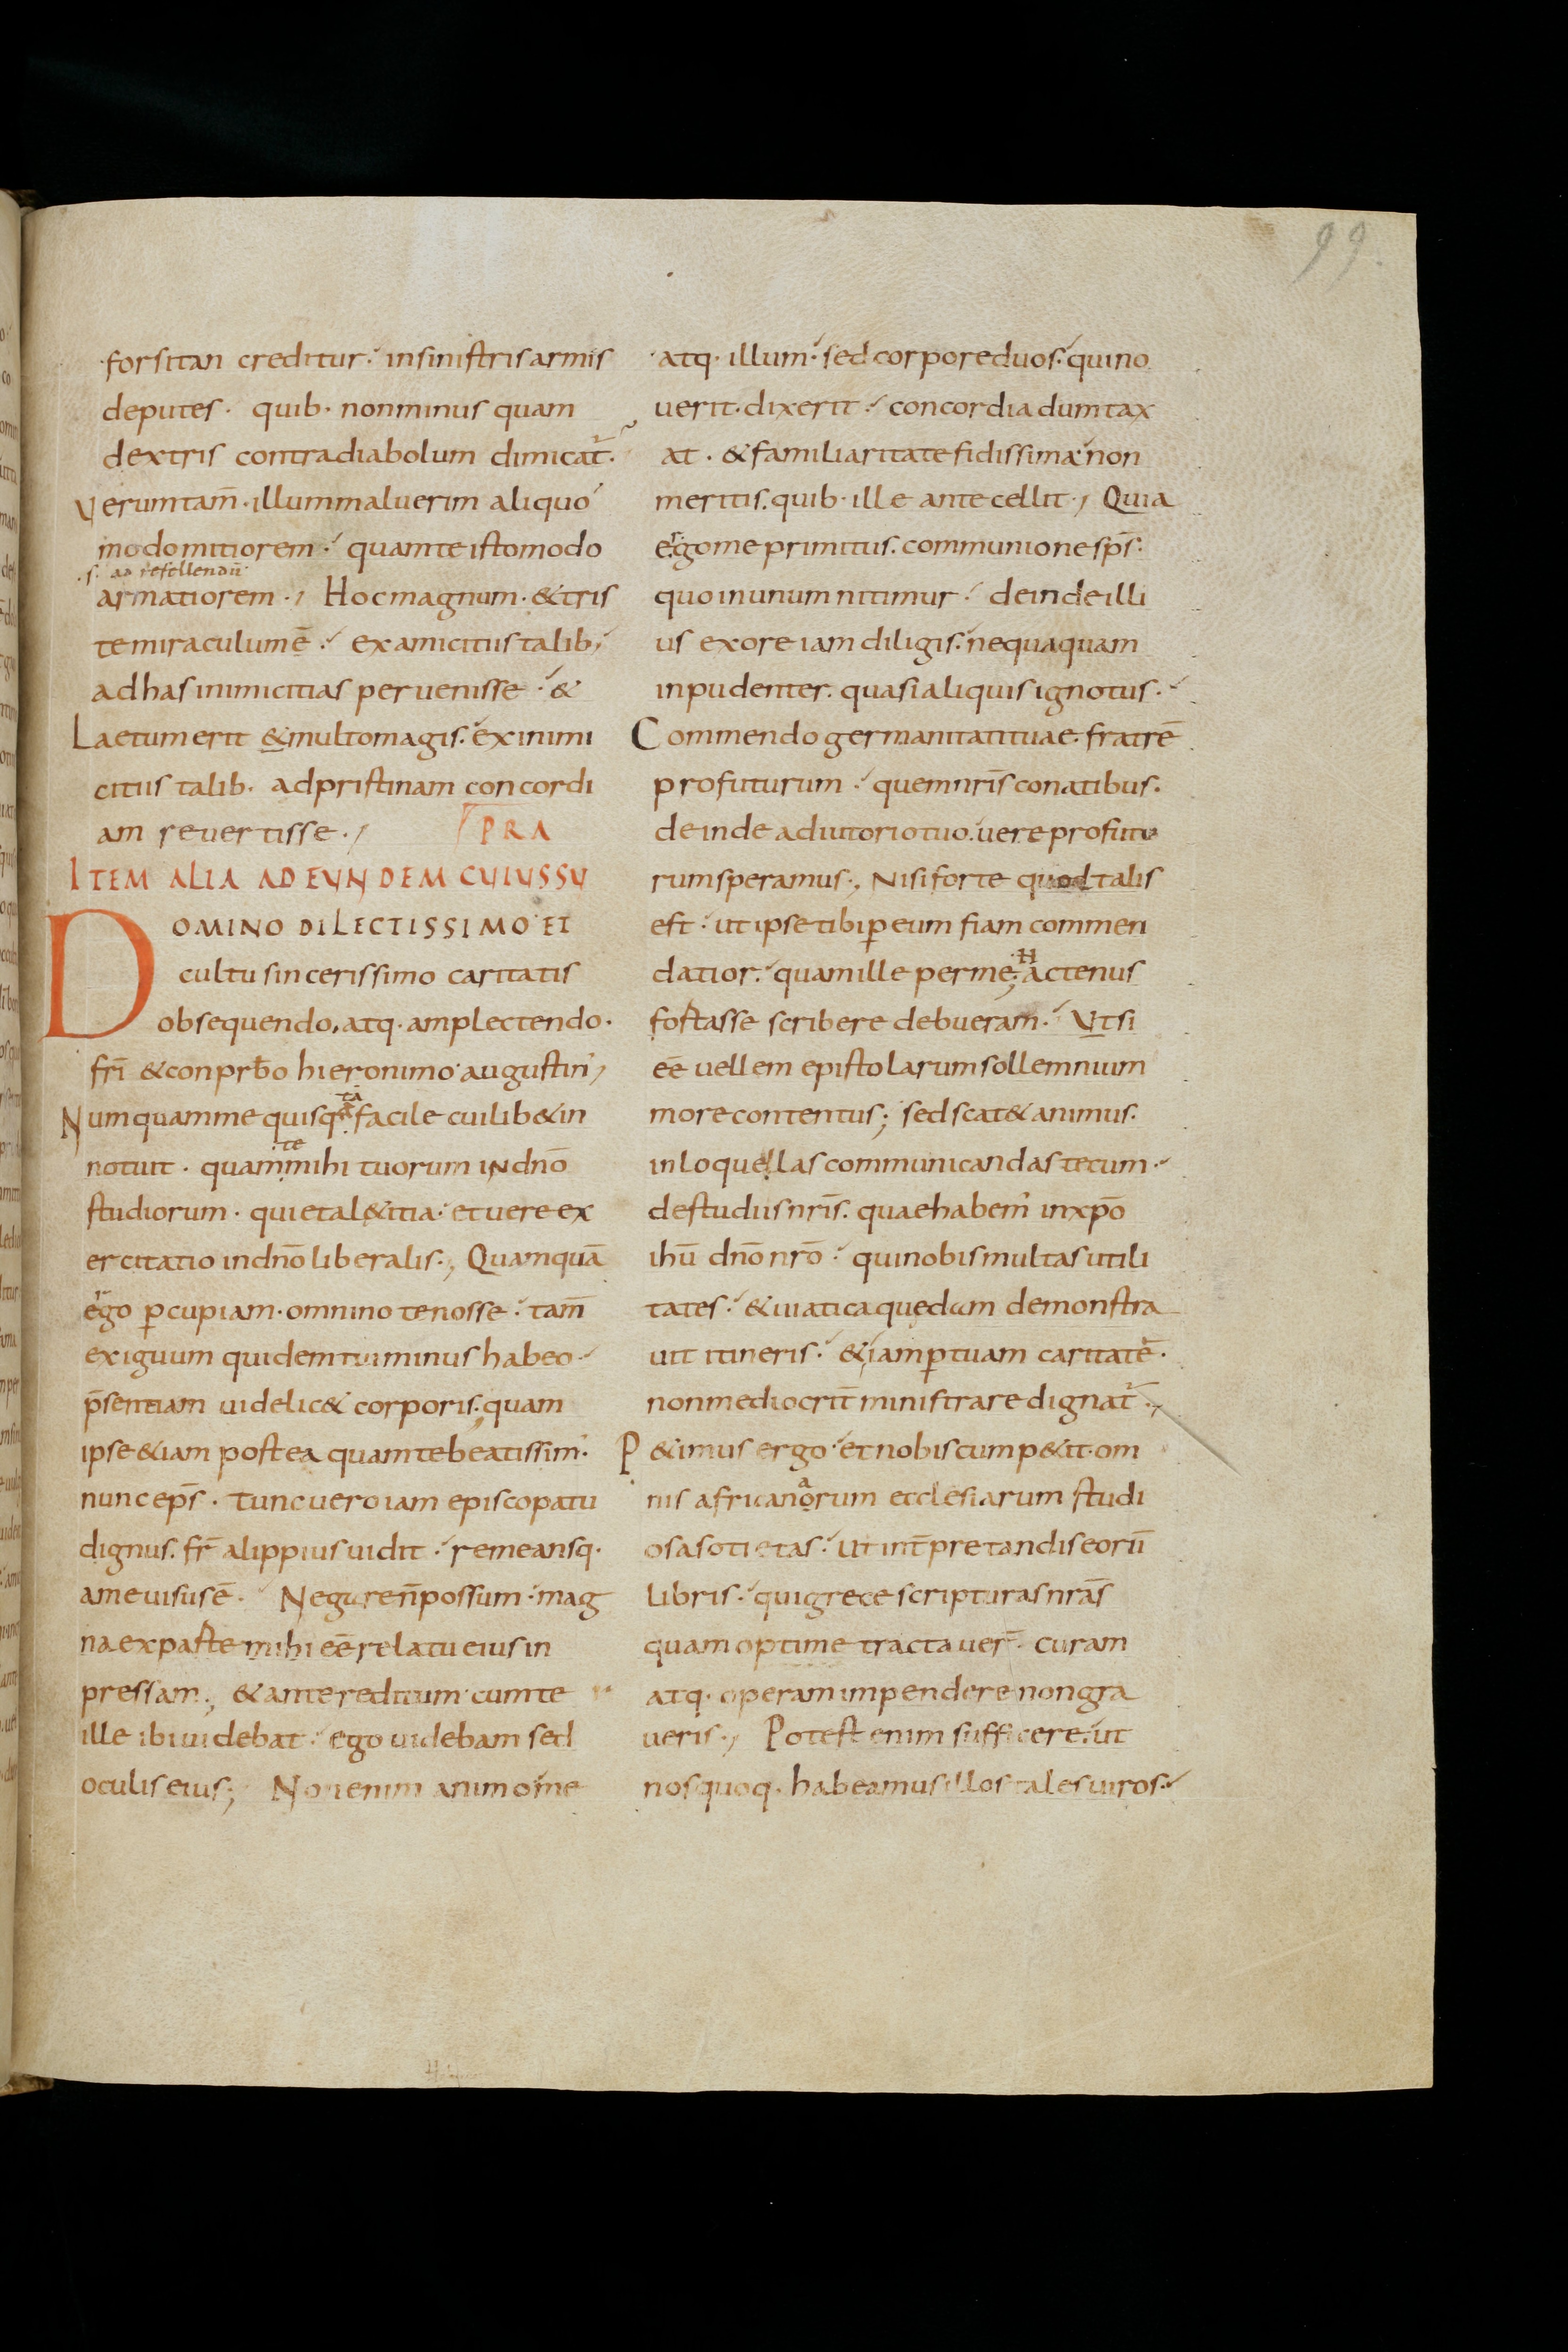 99.
forsitan creditur: insinistrisarmis
deputes. quib. nonminus quam
dextris contradiabolum dimicat̄.
Verumtam̄. illummaluerim aliquo
modomitiorem. quamteistomodo
.s. ad refellendū
armatiorem., Hocmagnum. &tris
temiraculumē. examicitiistalib,
adhasinimicitias peruenisse. &
Laetumerit &multomagis. exinimi
citiis talib. adpristinam concordi
am reuertisse.,
PRA
ITEM ALIA AD EUNDEM CUIUSSU
DOMINO DILECTISSIMO ET
cultu sincerissimo caritatis
obsequendo, atq. amplectendo.
fr̄i &conprb̄o hieronimo augustin,
ta
Numquamme quisq̄ facile cuilib&in
te
notuit. quammihi tuorum indn̄o
studiorum. quietal&itia. etuereex
ercitatio indn̄oliberalis., Quamquā
r
ego p̄cupiam. omnino tenosse. tam̄
exiguum quidemtuiminus habeo.
p̄sentiam uidelic& corporis. quam
ipse&iam postea quamtebeatissim'.
nunc ep̄s. tuncueroiam episcopatu
dignus. fr̄ alippiusuidit. remeansq.
ameuisusē. Neguren̄possum. mag
na exparte mihi eērelatueiusin
pressam., &antereditum cumte
ille ibiuidebat. ego uidebam sed
oculiseius; Nonenim animome
atq. illum. sedcorporeduos. quino
uerit. dixerit. concordia dumtax
at. &familiaritatefidissima. non
meritis. quib. ille antecellit., Quia
r
ergome primitus. communionesp̄s.
quoinunumnitimur. deindeilli
us exoreiamdiligis. nequaquam
inpudenter. quasialiquisignotus.
Commendo germanitatituae. fratrē
profuturum. quemnr̄isconatibus.
deinde adiutoriotuo. uereprofutu
rumsperamus., Nisiforte quodtalis
est. utipsetibip̄eum fiam commen
H
datior. quamille perme; actenus
fortasse scribere debueram. Utsi
eē uellem epistolarumsollemnium
morecontentus; sedscat&animus.
inloquellascommunicandastecum.
destudiisnr̄is. quaehabem' inxp̄o
ihū dn̄onr̄o. quinobismultasutili
tates. &uiaticaquedam demonstra
uit itineris. &iamp̄tuam caritatē.
nonmediocrit̄ministraredignat̄.,
P&imus ergo. etnobiscump&it. om
a
nis africanorum ecclesiarum studi
osasotietas. Utint̄pretandiseorū
libris. quigrecescripturasnrās
quam optime tractauer̄. curam
atq. operamimpenderenongra
ueris., Potest enim sufficere. ut
nosquoq. habeamusillostalesuiros.